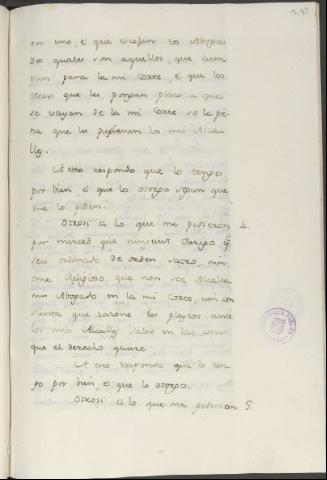 243
en uno, e que escojan los Aboga
dos quales son aquellos, que cum
plen para la mi Corte, e que los
otros que les pongan plazo a que
se vayan de la mi Corte so la pe
na que les pusieren los mis Alca
lles.
A esto respondo que lo tengo
por bien e que lo otorgo segun que
me lo piden.
Otrosi a lo que me pidieron 4.
por merced que ningunt clerigo q̃
sea ordenado de orden sacro, nin
ome Religioso que non sea Alcalle
nin Abogado en la mi Corte, nin con
sienta que razone los pleytos ante
los mis Alcalles salvo en las cosas
que el derecho quiere.
A esto respondo que lo ten
go por bien, e que lo otorgo.
Otrosi a lo que me pidieron 5.